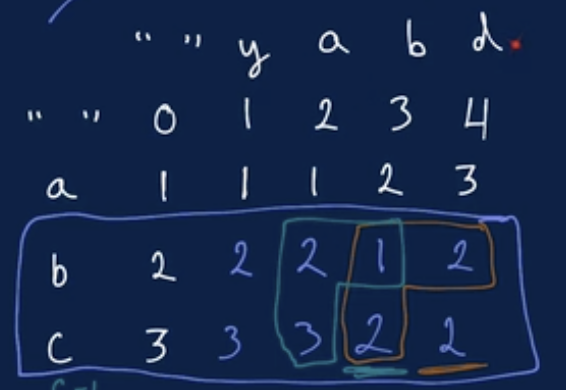 " " y a b d
" " 0 1 2 3 4
a 1 1 1 2 3
b 2 2 2 1 2
c 3 3 3 2 2